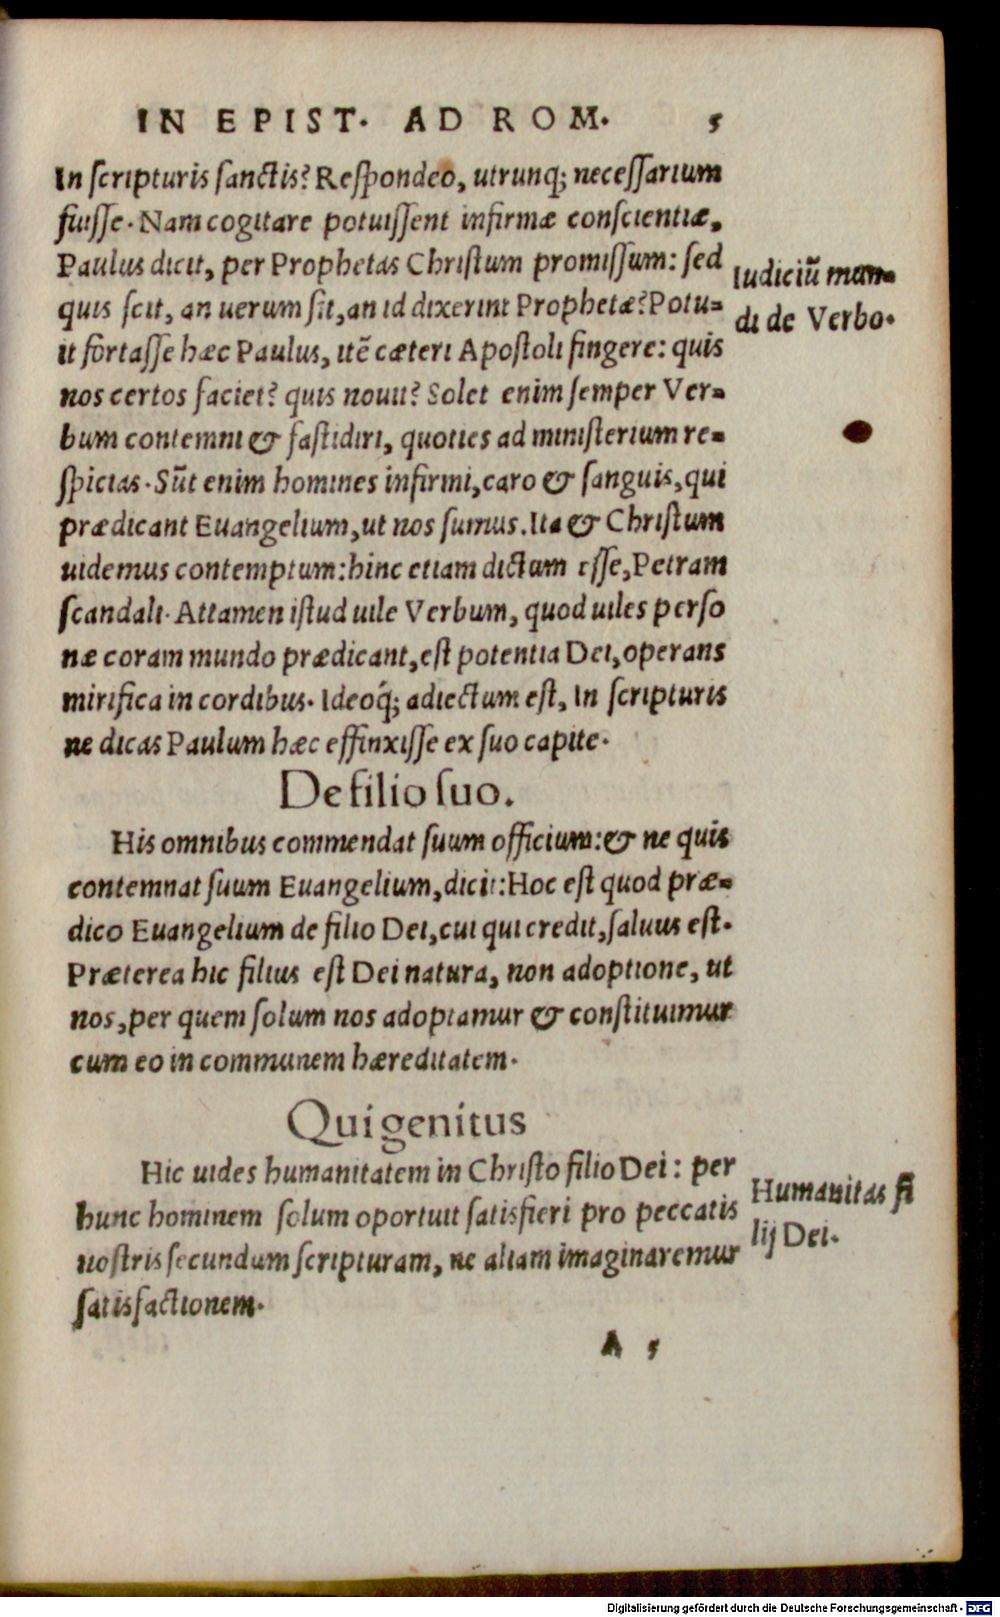 IN EPIST. AD ROM. 5
In ſcripturis ſanctis? Reſpondeo, utrunq; neceſſarium
fuiſſe. Nam cogitare potuiſſent infirmæ conſcientiæ,
Paulus dicit, per Prophetas Chriſtum promiſſum: ſed
quis ſcit, an uerum ſit, an id dixerint Prophetæ? Potu-
it fortaſſe hæc Paulus, itē cæteri Apoſtoli fingere: quis
nos certos faciet? quis nouit? Solet enim ſemper Ver-
bum contemni & faſtidiri, quoties ad miniſterium re-
ſpicias. Sūt enim homines infirmi, caro & ſanguis, qui
prædicant Euangelium, ut nos ſumus. Ita & Chriſtum
uidemus contemptum: hinc etiam dictum eſſe, Petram
ſcandali. Attamen iſtud uile Verbum, quod uiles perſo
næ coram mundo prædicant, eſt potentia Dei, operans
mirifica in cordibus. Ideoq́; adiectum eſt, In ſcripturis
ne dicas Paulum hæc effinxiſſe ex ſuo capite.
Iudiciū mun-
di de Verbo.
De filio ſuo.
His omnibus commendat ſuum officium: & ne quis
contemnat ſuum Euangelium, dicit: Hoc eſt quod præ-
dico Euangelium de filio Dei, cui qui credit, ſaluus eſt.
Præterea hic filius eſt Dei natura, non adoptione, ut
nos, per quem ſolum nos adoptamur & conſtituimur
cum eo in communem hæreditatem.
Qui genitus
Hic uides humanitatem in Chriſto filio Dei: per
hunc hominem ſolum oportuit ſatisfieri pro peccatis
noſtris ſecundum ſcripturam, ne aliam imaginaremur
ſatisfactionem.
Humanitas fi
lij Dei.
A 5
Digitalisierung gefördert durch die Deutsche Forschungsgemeinschaft - DFG